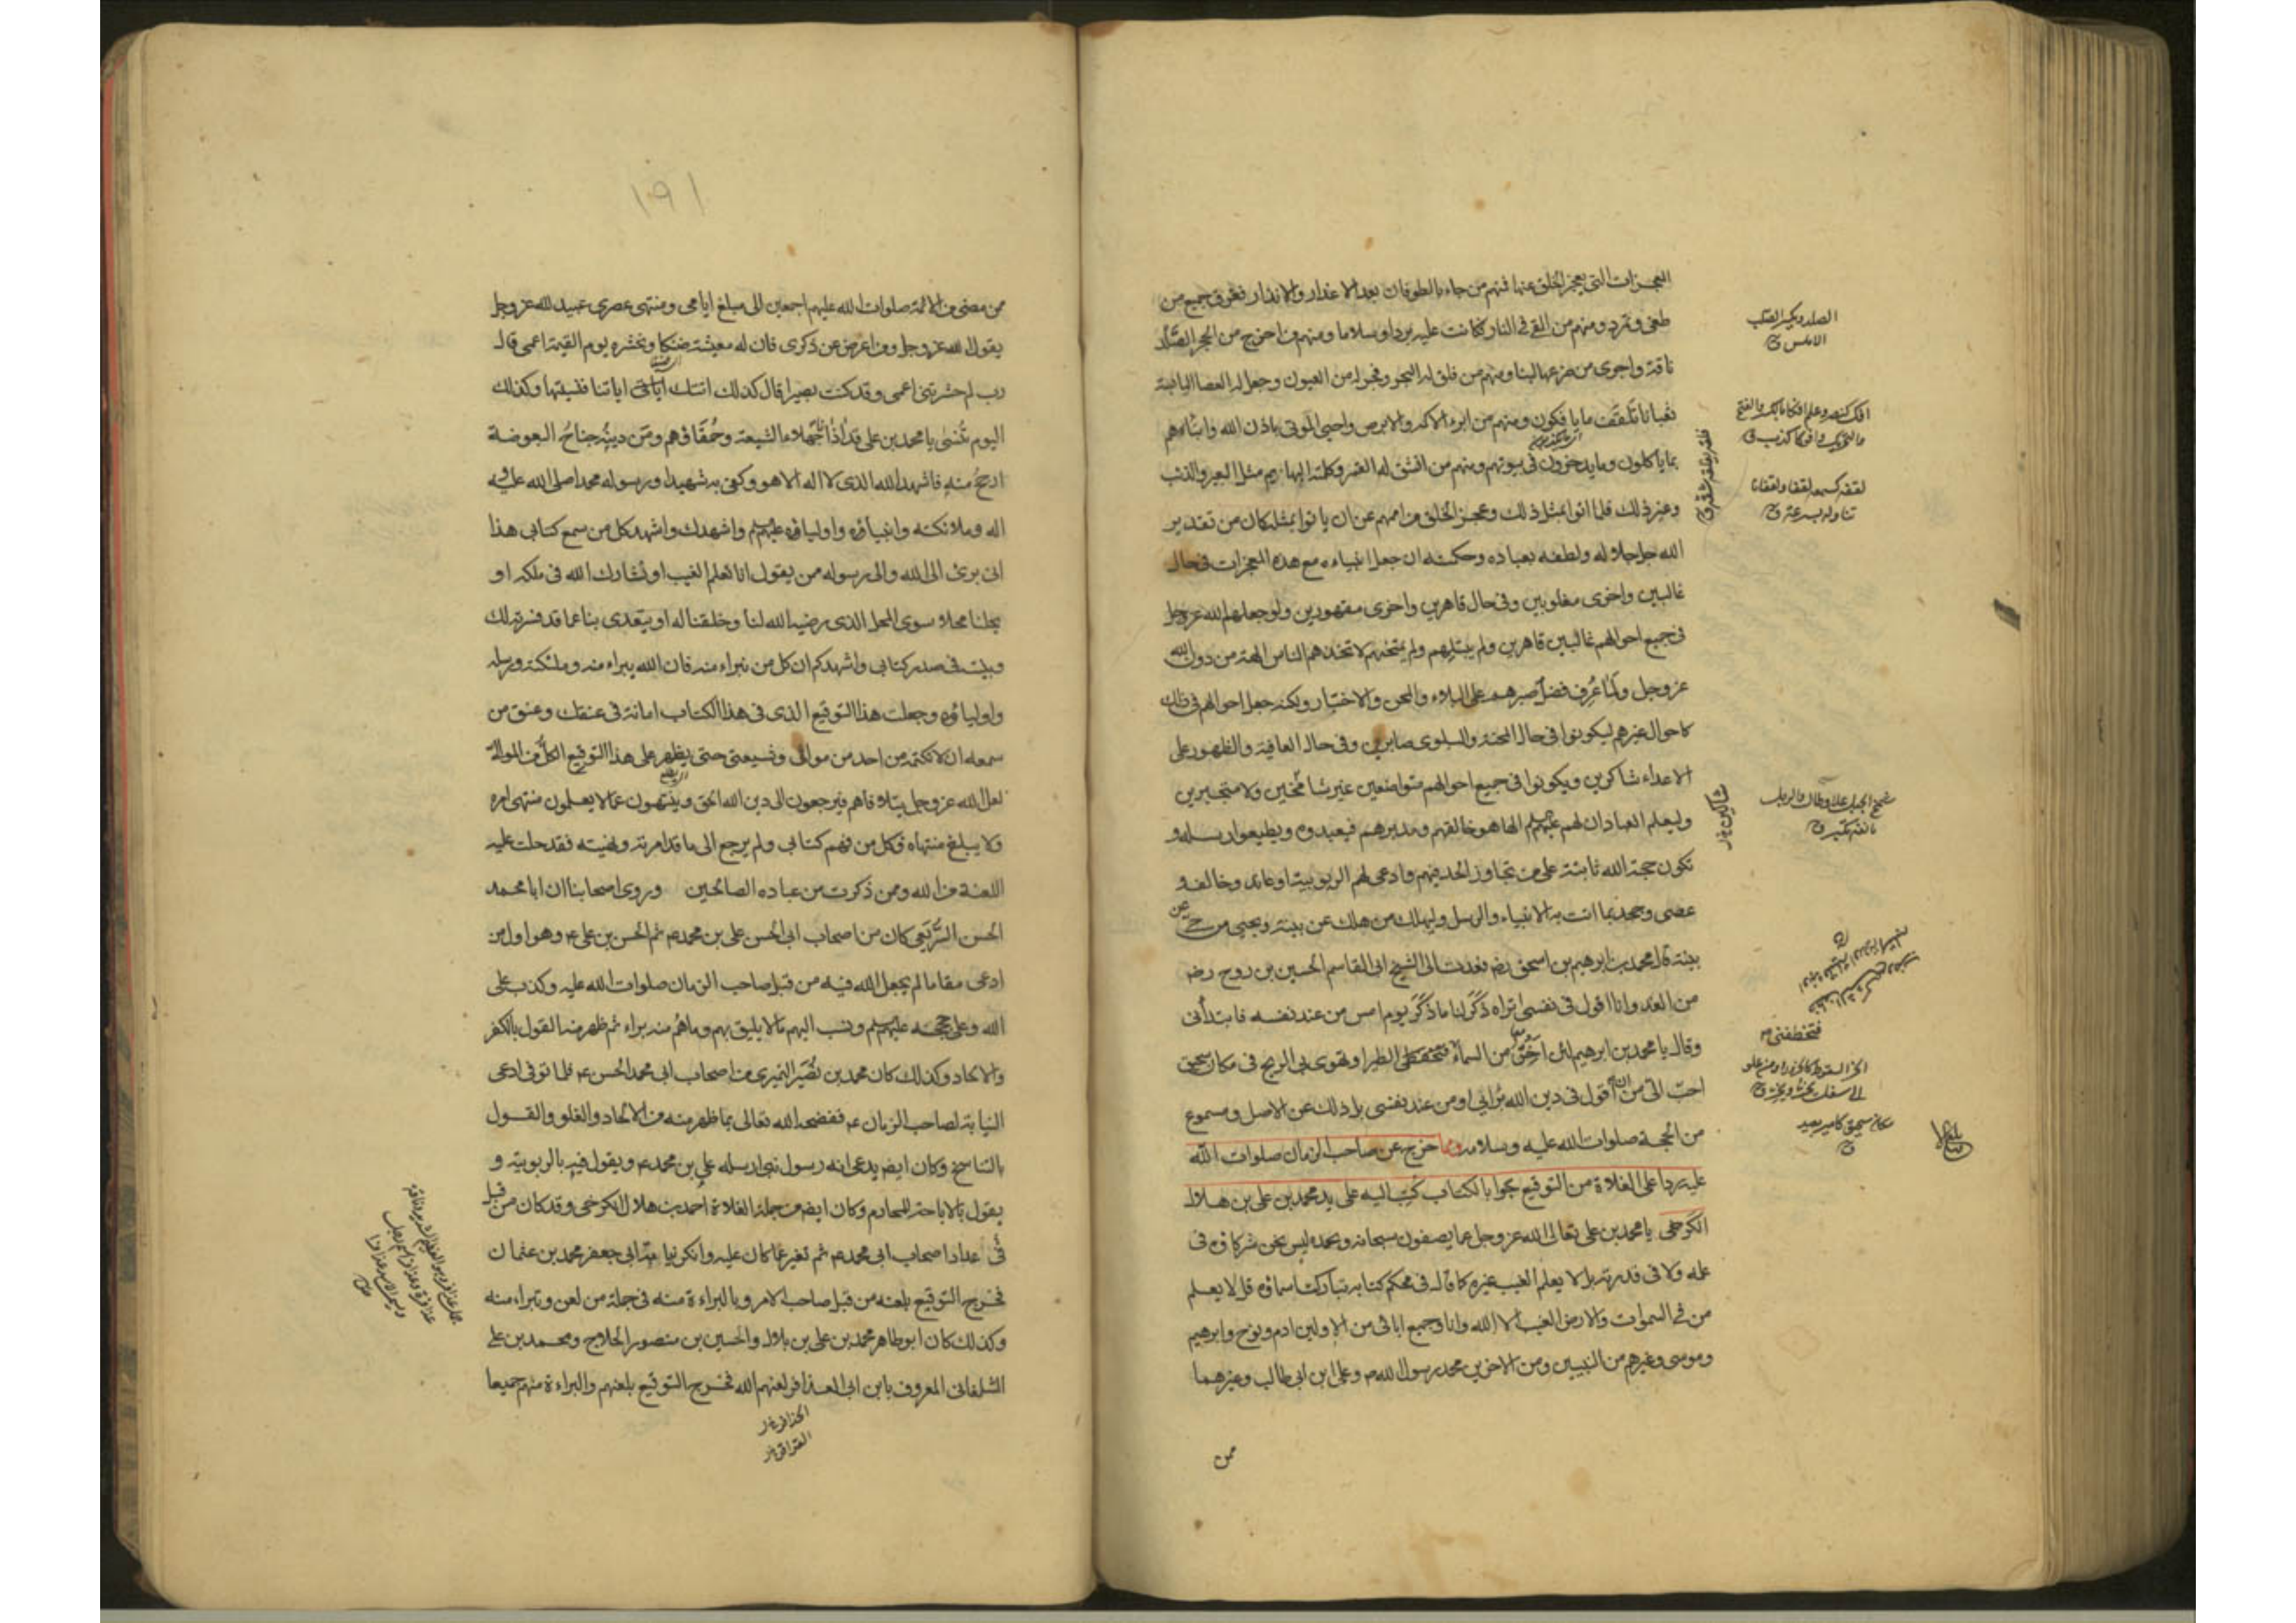 المعجزات التى يعجز الخلق عنها فمنهم من جاء بالطوفان بعد الاعذار والانذار فغرق جميع من
طغى وتمرد ومنهم من القى فى النار فكانت عليه بردا وسلاما ومنهم من اخرج من الحجر الصلد
ناقة واجرى من ضرعها لبنا ومنهم من فلق له البحر وفجر له من العيون وجعل له العصا اليابسة
ثعبانا تلقف ما يافكون ومنهم من ابرء الاكمه والابرص واحيى الموتى باذن الله وانبأهم
بما ياكلون وما يدخرون فى بيوتهم ومنهم من انشق له القمر وكلمته البهائم مثل البعير والذئب
وغير ذلك فلما اتوا بمثل ذلك وعجز الخلق من اممهم عن ان ياتوا بمثله كان من تقدير
الله جل جلاله ولطفه بعباده وحكمته ان جعل انبياءه مع هذه المعجزات فى حال
غالبين واخرى مغلوبين وفى حال قاهرين واخرى مقهورين ولو جعلهم الله عز وجل
فى جميع احوالهم غالبين قاهرين ولم يبتلهم ولم يمتحنهم لاتخذهم الناس الهة من دون الله
عز وجل ولما عُرِف فضل صبرهم على البلاء والمحن والاختبار ولكنه جعل احوالهم فى ذلك
كاحوال غيرهم ليكونوا فى حال المحنة والبلوى صابرين وفى حال العافية والظهور على
الاعداء شاكرين ويكونوا فى جميع احوالهم متواضعين غير شامخين ولا متجبرين
وليعلم العباد ان لهم عليهم السلم الها هو خالقهم ومدبرهم فيعبدوه ويطيعوا رسله و
تكون حجة الله ثابتة على من تجاوز الحد فيهم وادعى لهم الربوبية او عاند وخالف و
عصى وجحد بما اتت به الانبياء والرسل وليهلك من هلك عن بينة ويحيى من حى عن
بينة قال محمد بن ابرهيم بن اسحق رض فعدت الى الشيخ ابى القاسم الحسين بن روح رض
من الغد وانا اقول فى نفسى اتراه ذَكَر لنا ما ذَكَر يوم امس من عند نفسه فابتدأنى
وقال يا محمد بن ابرهيم لئن اَخِرّ من السماء فتخطفنى الطير او تهوى بى الريح فى مكان سحيق
احب الىّ من ان اقول فى دين الله برايى او من عند نفسى بل ذلك عن الاصل ومسموع
من الحجة صلوات الله عليه وسلامه ومما خرج عن صاحب الزمان صلوات الله
عليه ردا على الغلاة من التوقيع جوابا لكتاب كُتِب اليه على يد محمد بن على بن هلال
الكرخى يا محمد بن على تعالى الله عز وجل عما يصفون سبحانه وبحمده ليس نحن شركاؤه فى
علمه ولا فى قدرته بل لا يعلم الغيب غيره كما قال فى محكم كتابه تباركت اسماؤه قل لا يعلم
من فى السموات والارض الغيب الا الله وانا وجميع ابائى من الاولين ادم ونوح وابرهيم
وموسى وغيرهم من النبيين ومن الاخرين محمد رسول الله ص وعلى ابن ابى طالب وغيرهما
ممن
الصلد ويكسر الصلب
الاملس ق
افك كضرب وعلم افكا بالكسر والفتح
والتحريك وافوكا كذب ق
لقفه كسمع لقفا ولقفانا
تناوله بسرعة ق
فلقه يفلقه شقه ق
شمخ الجبل علا وطال والرجل
بانفه تكبر ق
فتخطفنى
الخر السقوط كالخرور او من علو
الى اسفل يخر ويخر ق
مكان سحيق كامير بعيد
ق
١٩١
ممن مضى من الائمة صلوات الله عليهم اجمعين الى مبلغ ايامى ومنتهى عصرى عبيد الله عز وجل
يقول الله عز وجل ومن اعرض عن ذكرى فان له معيشة ضنكا ونحشره يوم القيمة اعمى قال
رب لم حشرتنى اعمى وقد كنت بصيرا قال كذلك اتتك اياتنا فنسيتها وكذلك
اليوم تُنسَى يا محمد بن على قد اٰذانا جُهَلاء الشيعة وحُمَقاؤهم ومَن دينُه جناحُ البعوضة
ارجحُ منه فاشهد الله الذى لا اله الا هو وكفى به شهيدا ورسوله محمدا صلى الله عليه
اله وملائكته وانبياؤه واولياؤه عليهم السلم واشهدك واشهد كل من سمع كتابى هذا
انى برئ الى الله والى رسوله من يقول انا نعلم الغيب او نشارك الله فى ملكه او
يحلنا محلا سوى المحل الذى رضيه الله لنا وخلقنا له او يتعدى بنا عما قد فسرته لك
وبينته فى صدر كتابى واشهدكم ان كل من نبراء منه فان الله يبراء منه وملئكته ورسله
واولياؤه وجعلت هذا التوقيع الذى فى هذا الكتاب امانة فى عنقك وعنق من
سمعه ان لا يكتمه من احد من موالى وشيعتى حتى يظهر على هذا التوقيع الكل من الموالى
لعل الله عز وجل يتلافاهم فيرجعون الى دين الله الحق وينتهون عما لا يعلمون منتهى امره
ولا يبلغ منتهاه فكل من فهم كتابى ولم يرجع الى ما قد امرته ونهيته فقد حلت عليه
اللعنة من الله وممن ذكرت من عباده الصالحين وروى اصحابنا ان ابا محمد
الحسن السريعى كان من اصحاب ابى الحسن على بن محمد ع ثم الحسن بن على ع وهو اول من
ادعى مقاما لم يجعل الله فيه من قبل صاحب الزمان صلوات الله عليه وكذب على
الله وعلى حججه عليهم السلم ونسب اليهم ما لا يليق بهم وما هُم منه براء ثم ظهر منه القول بالكفر
والالحاد وكذلك كان محمد بن نُصَير النميرى من اصحاب ابى محمد الحسن ع فلما توفى ادعى
النيابة لصاحب الزمان ع ففضحه الله تعالى بما ظهر منه من الالحاد والغلو والقول
بالتناسخ وكان ايضا يدعى انه رسول نبى ارسله على بن محمد ع ويقول فيه بالربوبية و
يقول بالاباحة للمحارم وكان ايضا من جملة الغلاة احمد بن هلال الكرخى وقد كان من قبل
فى عداد اصحاب ابى محمد ع ثم تغير عما كان عليه وانكر نيابة ابى جعفر محمد بن عثمان
فخرج التوقيع بلعنه من قبل صاحب الامر وبالبراءة منه فى جملة من لعن وتبراء منه
وكذلك كان ابو طاهر محمد بن على بن بلال والحسين بن منصور الحلاج ومحمد بن على
الشلمغانى المعروف بابن ابى العذافر لعنهم الله فخرج التوقيع بلعنهم والبراءة منهم جميعا